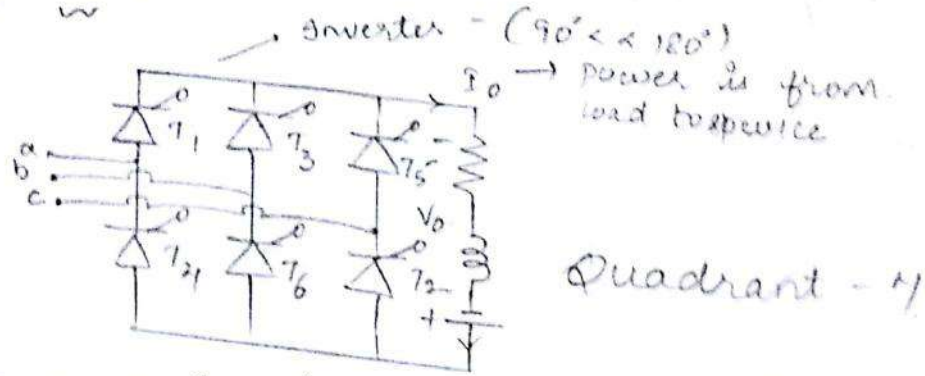 Inverter - (90° < α 180°)
I₀ → power is from
load to
T₁
T₃
T₅ -
a
b
c
V₀
T₄
T₆
T₂
+
Quadrant - 4